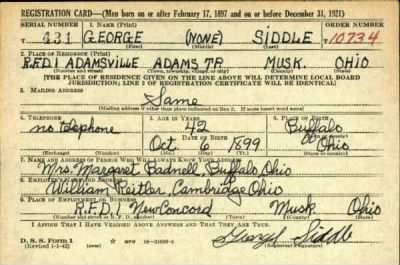 REGISTRATION CARD—(Men born on or after February 17, 1897 and on or before December 31, 1921)
SERIAL NUMBER 1. NAME (Print) ORDER NUMBER
U 431 GEORGE (NONE) SIDDLE T10734
(First) (Middle) (Last)
2. PLACE OF RESIDENCE (Print)
R.F.D1 ADAMSVILLE ADAMS TP. MUSK. OHIO
(Number and street) (Town, township, village, or city) (County) (State)
[THE PLACE OF RESIDENCE GIVEN ON THE LINE ABOVE WILL DETERMINE LOCAL BOARD
JURISDICTION; LINE 2 OF REGISTRATION CERTIFICATE WILL BE IDENTICAL]
3. MAILING ADDRESS
Same
(Mailing address if other than place indicated on line 2. If same insert word same)
4. TELEPHONE 5. AGE IN YEARS 6. PLACE OF BIRTH
no telephone 42 Buffalo
DATE OF BIRTH (Town or county)
Oct 6 1899 Ohio
(Exchange) (Number) (Mo.) (Day) (Yr.) (State or country)
7. NAME AND ADDRESS OF PERSON WHO WILL ALWAYS KNOW YOUR ADDRESS
Mrs. Margaret Badnell, Buffalo, Ohio
8. EMPLOYER'S NAME AND ADDRESS
William Reitler, Cambridge Ohio
9. PLACE OF EMPLOYMENT OR BUSINESS
R.F.D1 New Concord Musk Ohio
(Number and street or R. F. D. number) (Town) (County) (State)
I AFFIRM THAT I HAVE VERIFIED ABOVE ANSWERS AND THAT THEY ARE TRUE.
D. S. S. Form 1
(Revised 1-1-42) (over) GPO 16—21630-2 George Siddle
(Registrant's signature)